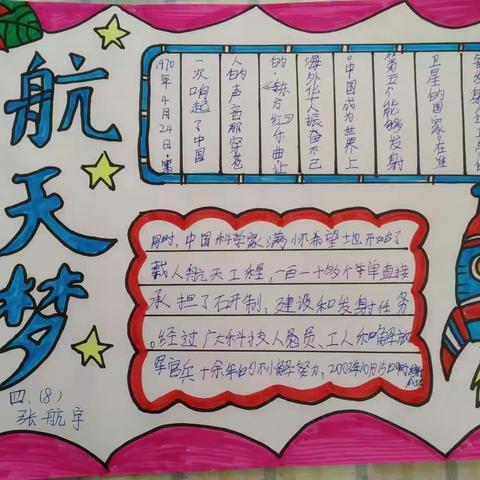 航天梦
1970年4月24日第
一次响起了中国
人的声音那穿着
的《东方红》乐曲让
海外华人振奋不已
。中国成为世界上
第五个能够发射
卫星的国家。在准
同时，中国科学家满怀希望地开始了
载人航天工程，一百一十多个单直接
承担了研制，建设和发射任务
。经过广大科技人员、工人和解放
军官兵十余年的不懈努力,2003年10月15日9时
四.(8)
张航宇